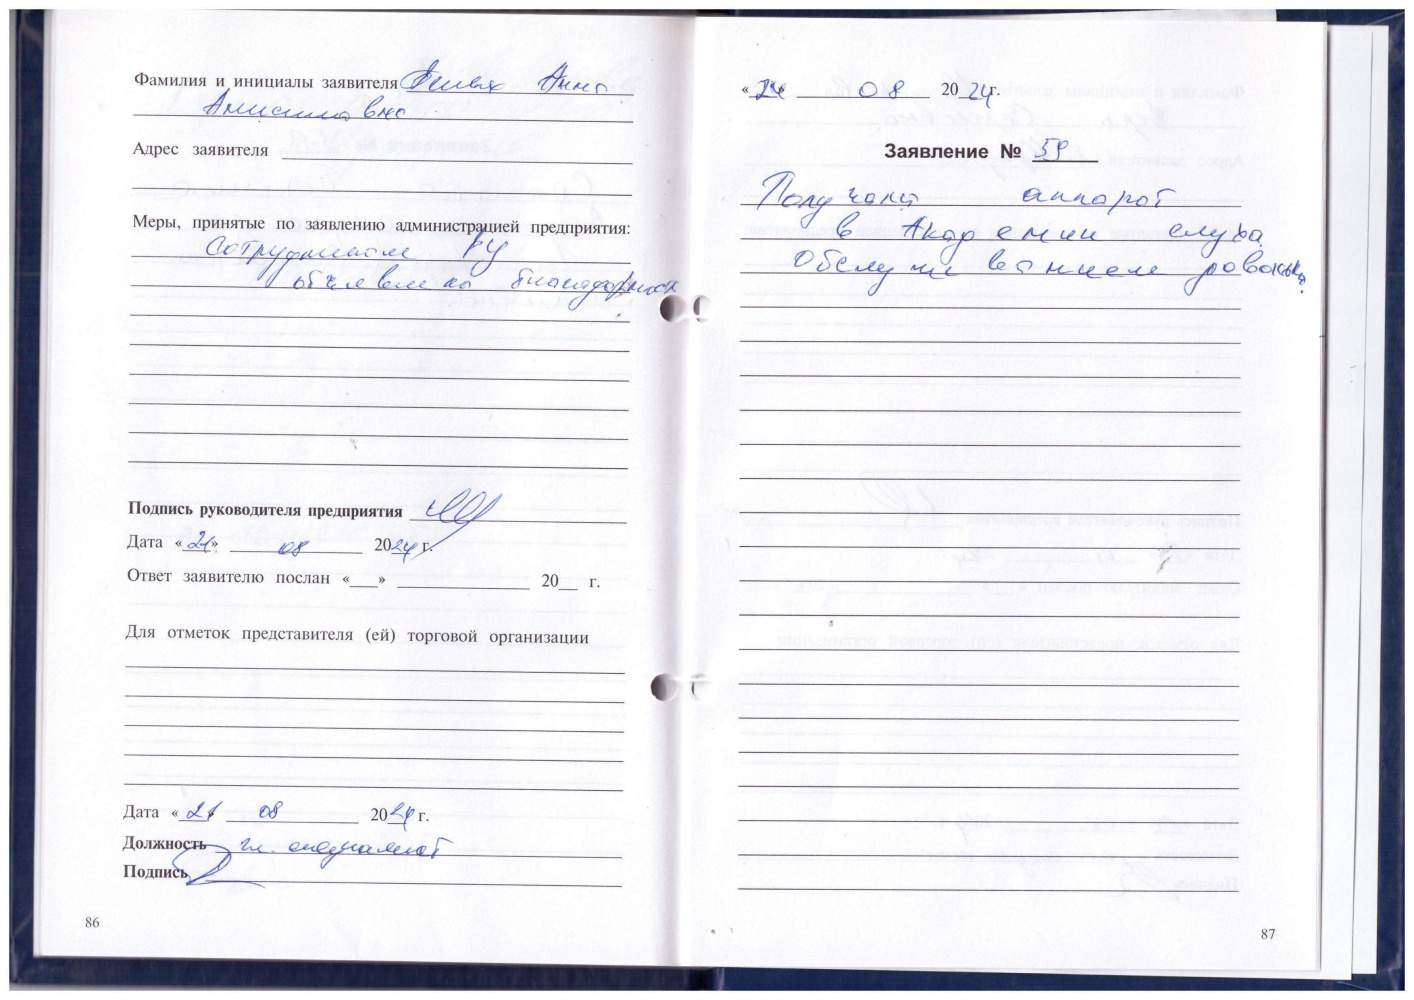 Фамилия и инициалы заявителя Анна
Адрес заявителя
Меры, принятые по заявлению администрацией предприятия:
Сотрудникам РЦ
объявлена благодарность
Подпись руководителя предприятия
Дата «21» 08 2024 г.
Ответ заявителю послан «___» 20__ г.
Для отметок представителя (ей) торговой организации
Дата «21 08 2024 г.
Должность гл. специалист
Подпись
86
« » 08 2024 г.
Заявление № 59
Получала аппарат
в Академии слуха
Обслуживанием довольна.
87